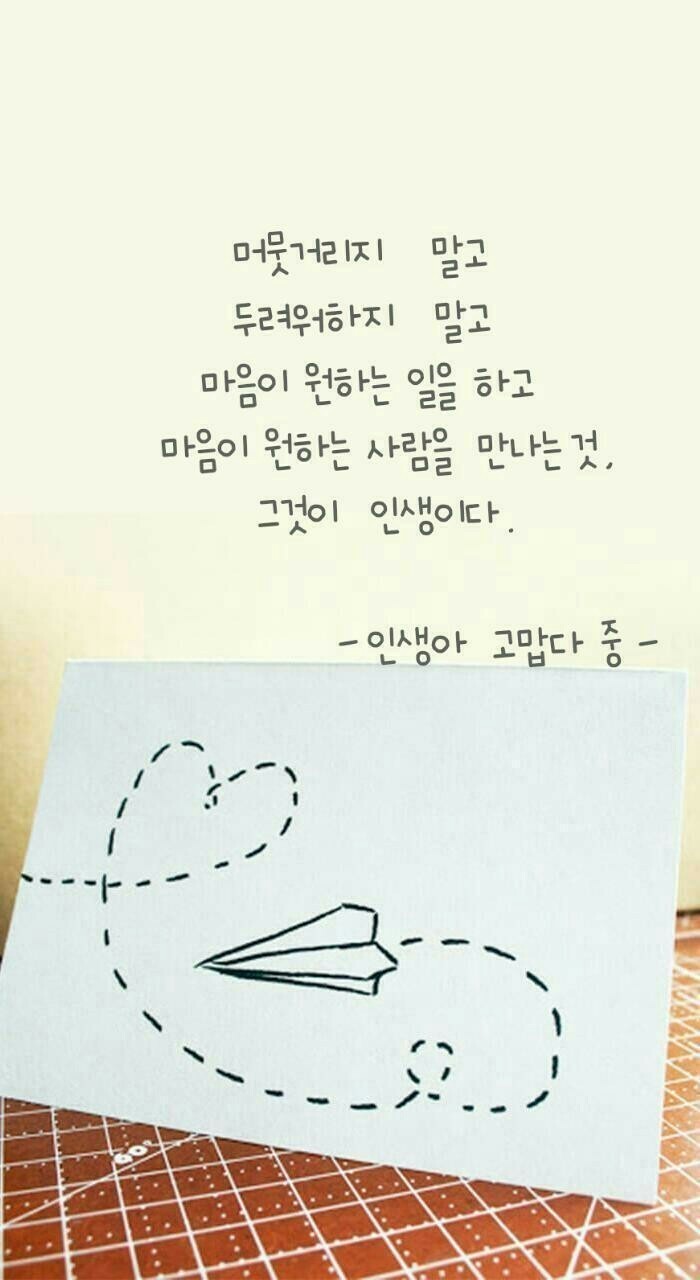 머뭇거리지 말고
두려워하지 말고
마음이 원하는 일을 하고
마음이 원하는 사람을 만나는것,
그것이 인생이다.
- 인생아 고맙다 중 -
60°